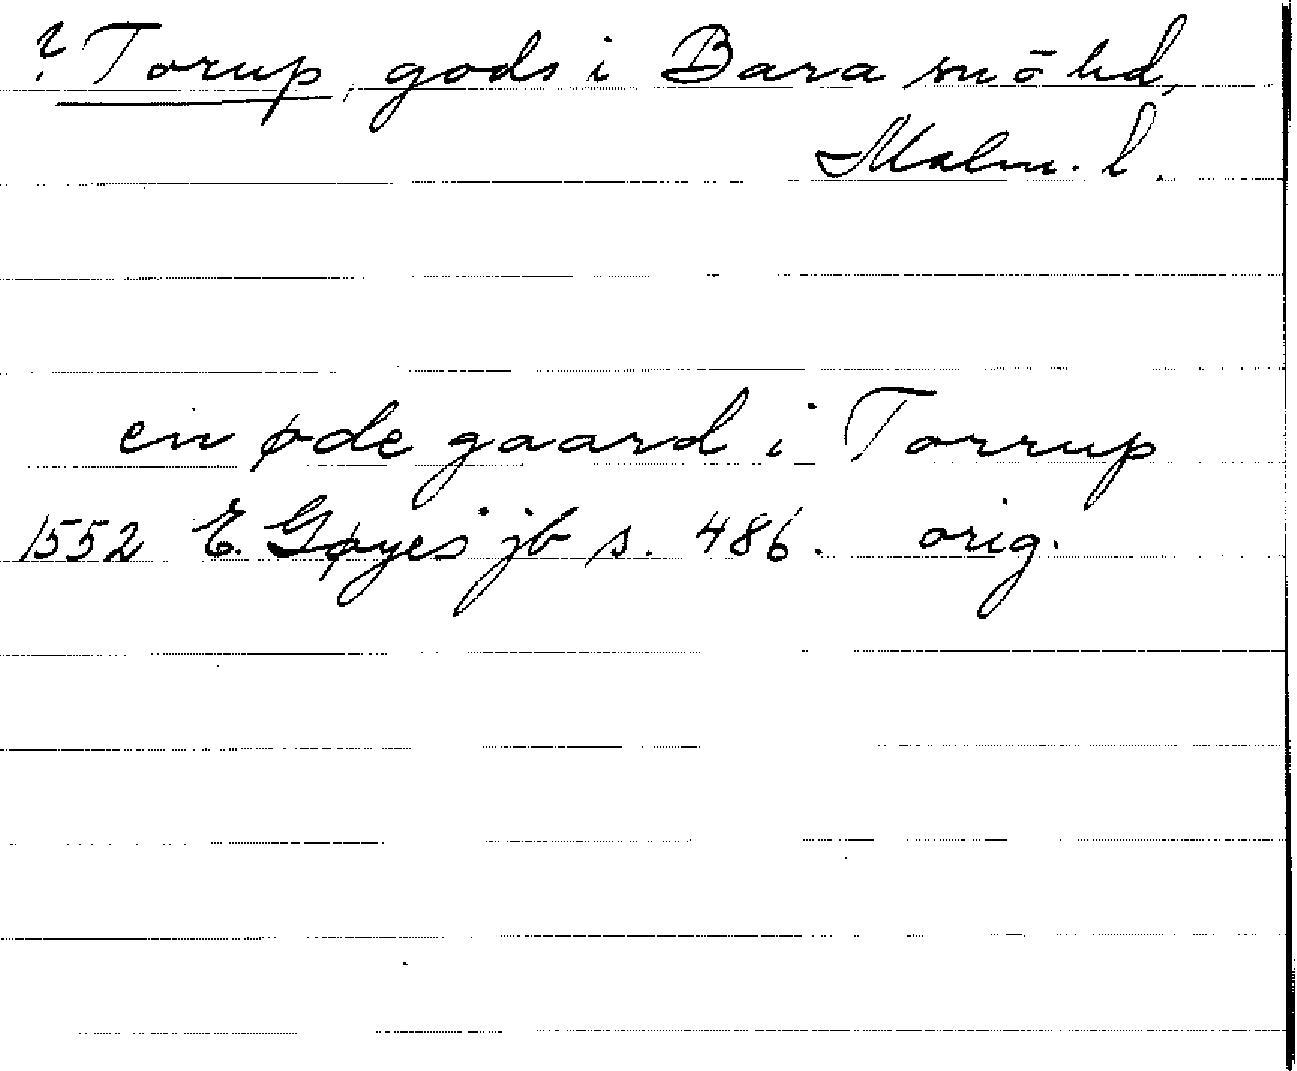 ? Torup, gods i Bara sn õ hd,
Malm. l.
en øde gaard i Torrup
1552 E. Gøyes jb s. 486. orig.